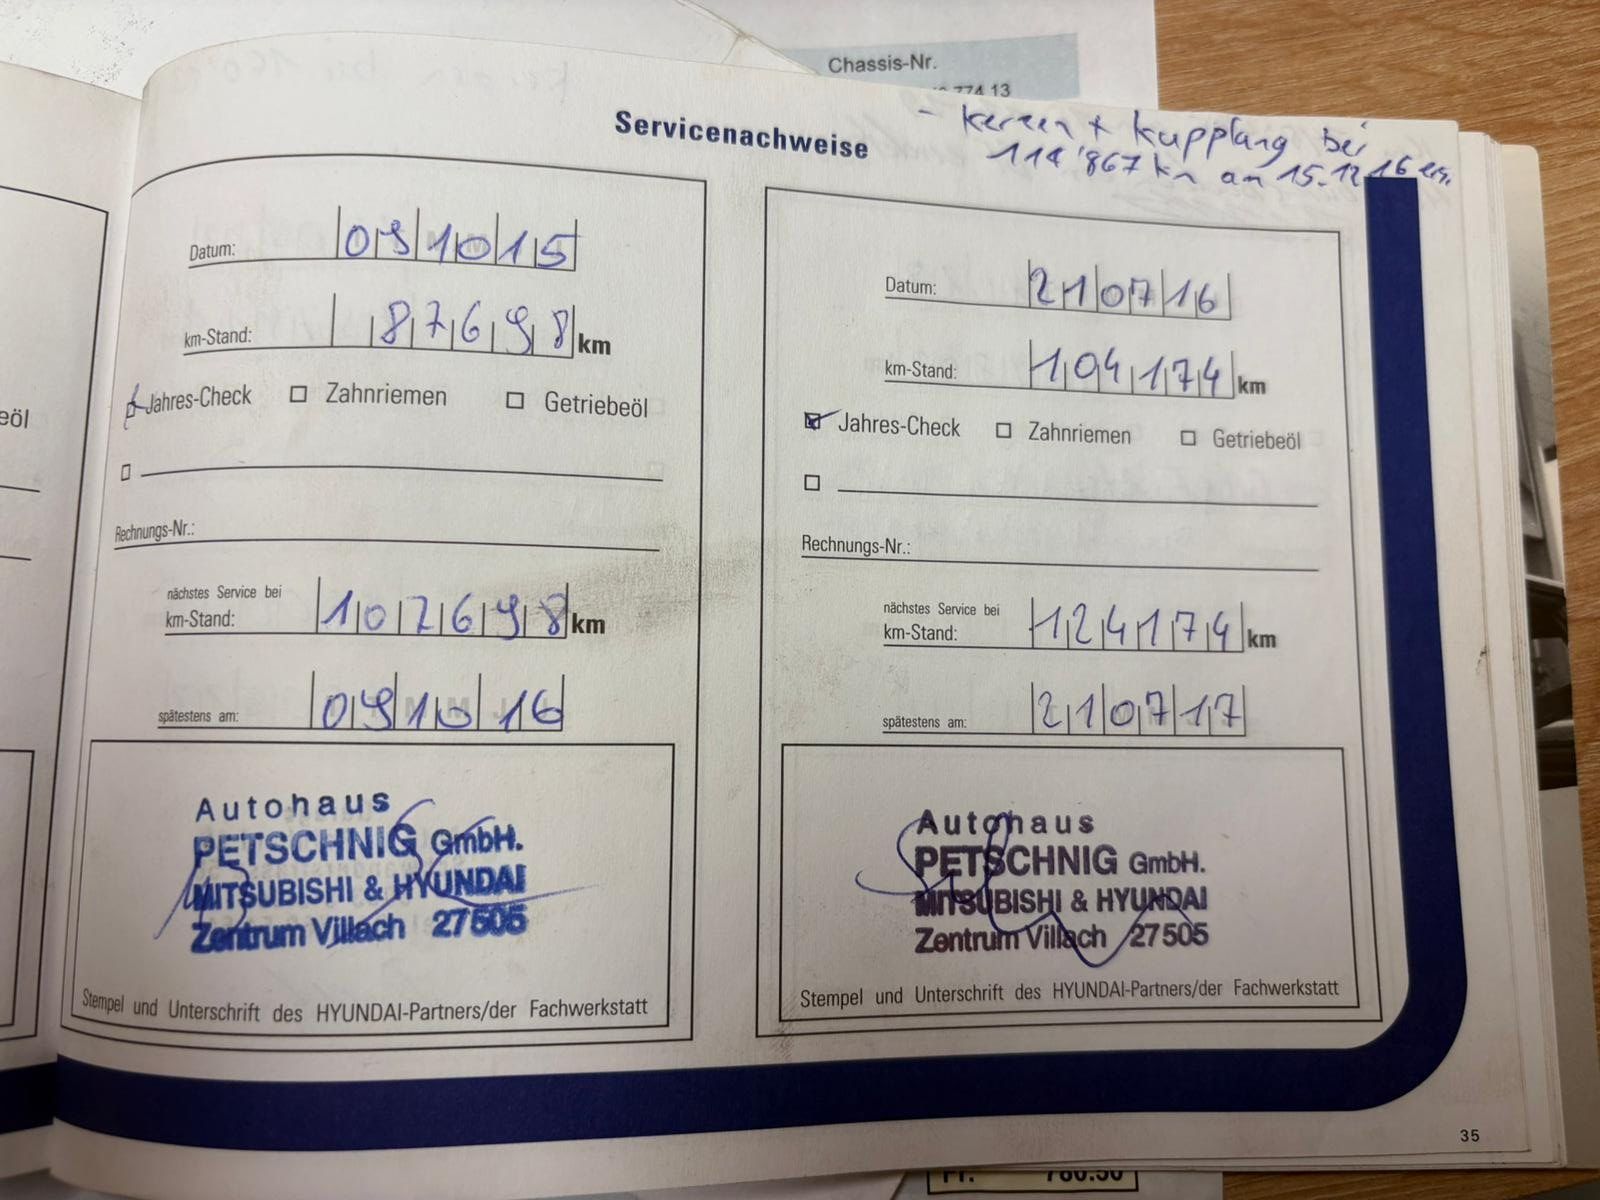 Chassis-Nr.
774 13
Servicenachweise
- Kerzen + Kupplung bei
114'867 km an 15.12.16 ers.
eöl
Datum: 09 10 15
km-Stand: 87698 km
Jahres-Check Zahnriemen Getriebeöl
Rechnungs-Nr.:
nächstes Service bei
km-Stand: 107698 km
spätestens am: 09 10 16
Autohaus
PETSCHNIG GmbH.
MITSUBISHI & HYUNDAI
Zentrum Villach 27505
Stempel und Unterschrift des HYUNDAI-Partners/der Fachwerkstatt
Datum: 21 07 16
km-Stand: 104174 km
Jahres-Check Zahnriemen Getriebeöl
Rechnungs-Nr.:
nächstes Service bei
km-Stand: 124174 km
spätestens am: 21 07 17
Autohaus
PETSCHNIG GmbH.
MITSUBISHI & HYUNDAI
Zentrum Villach 27505
Stempel und Unterschrift des HYUNDAI-Partners/der Fachwerkstatt
35
Fr. 780.50